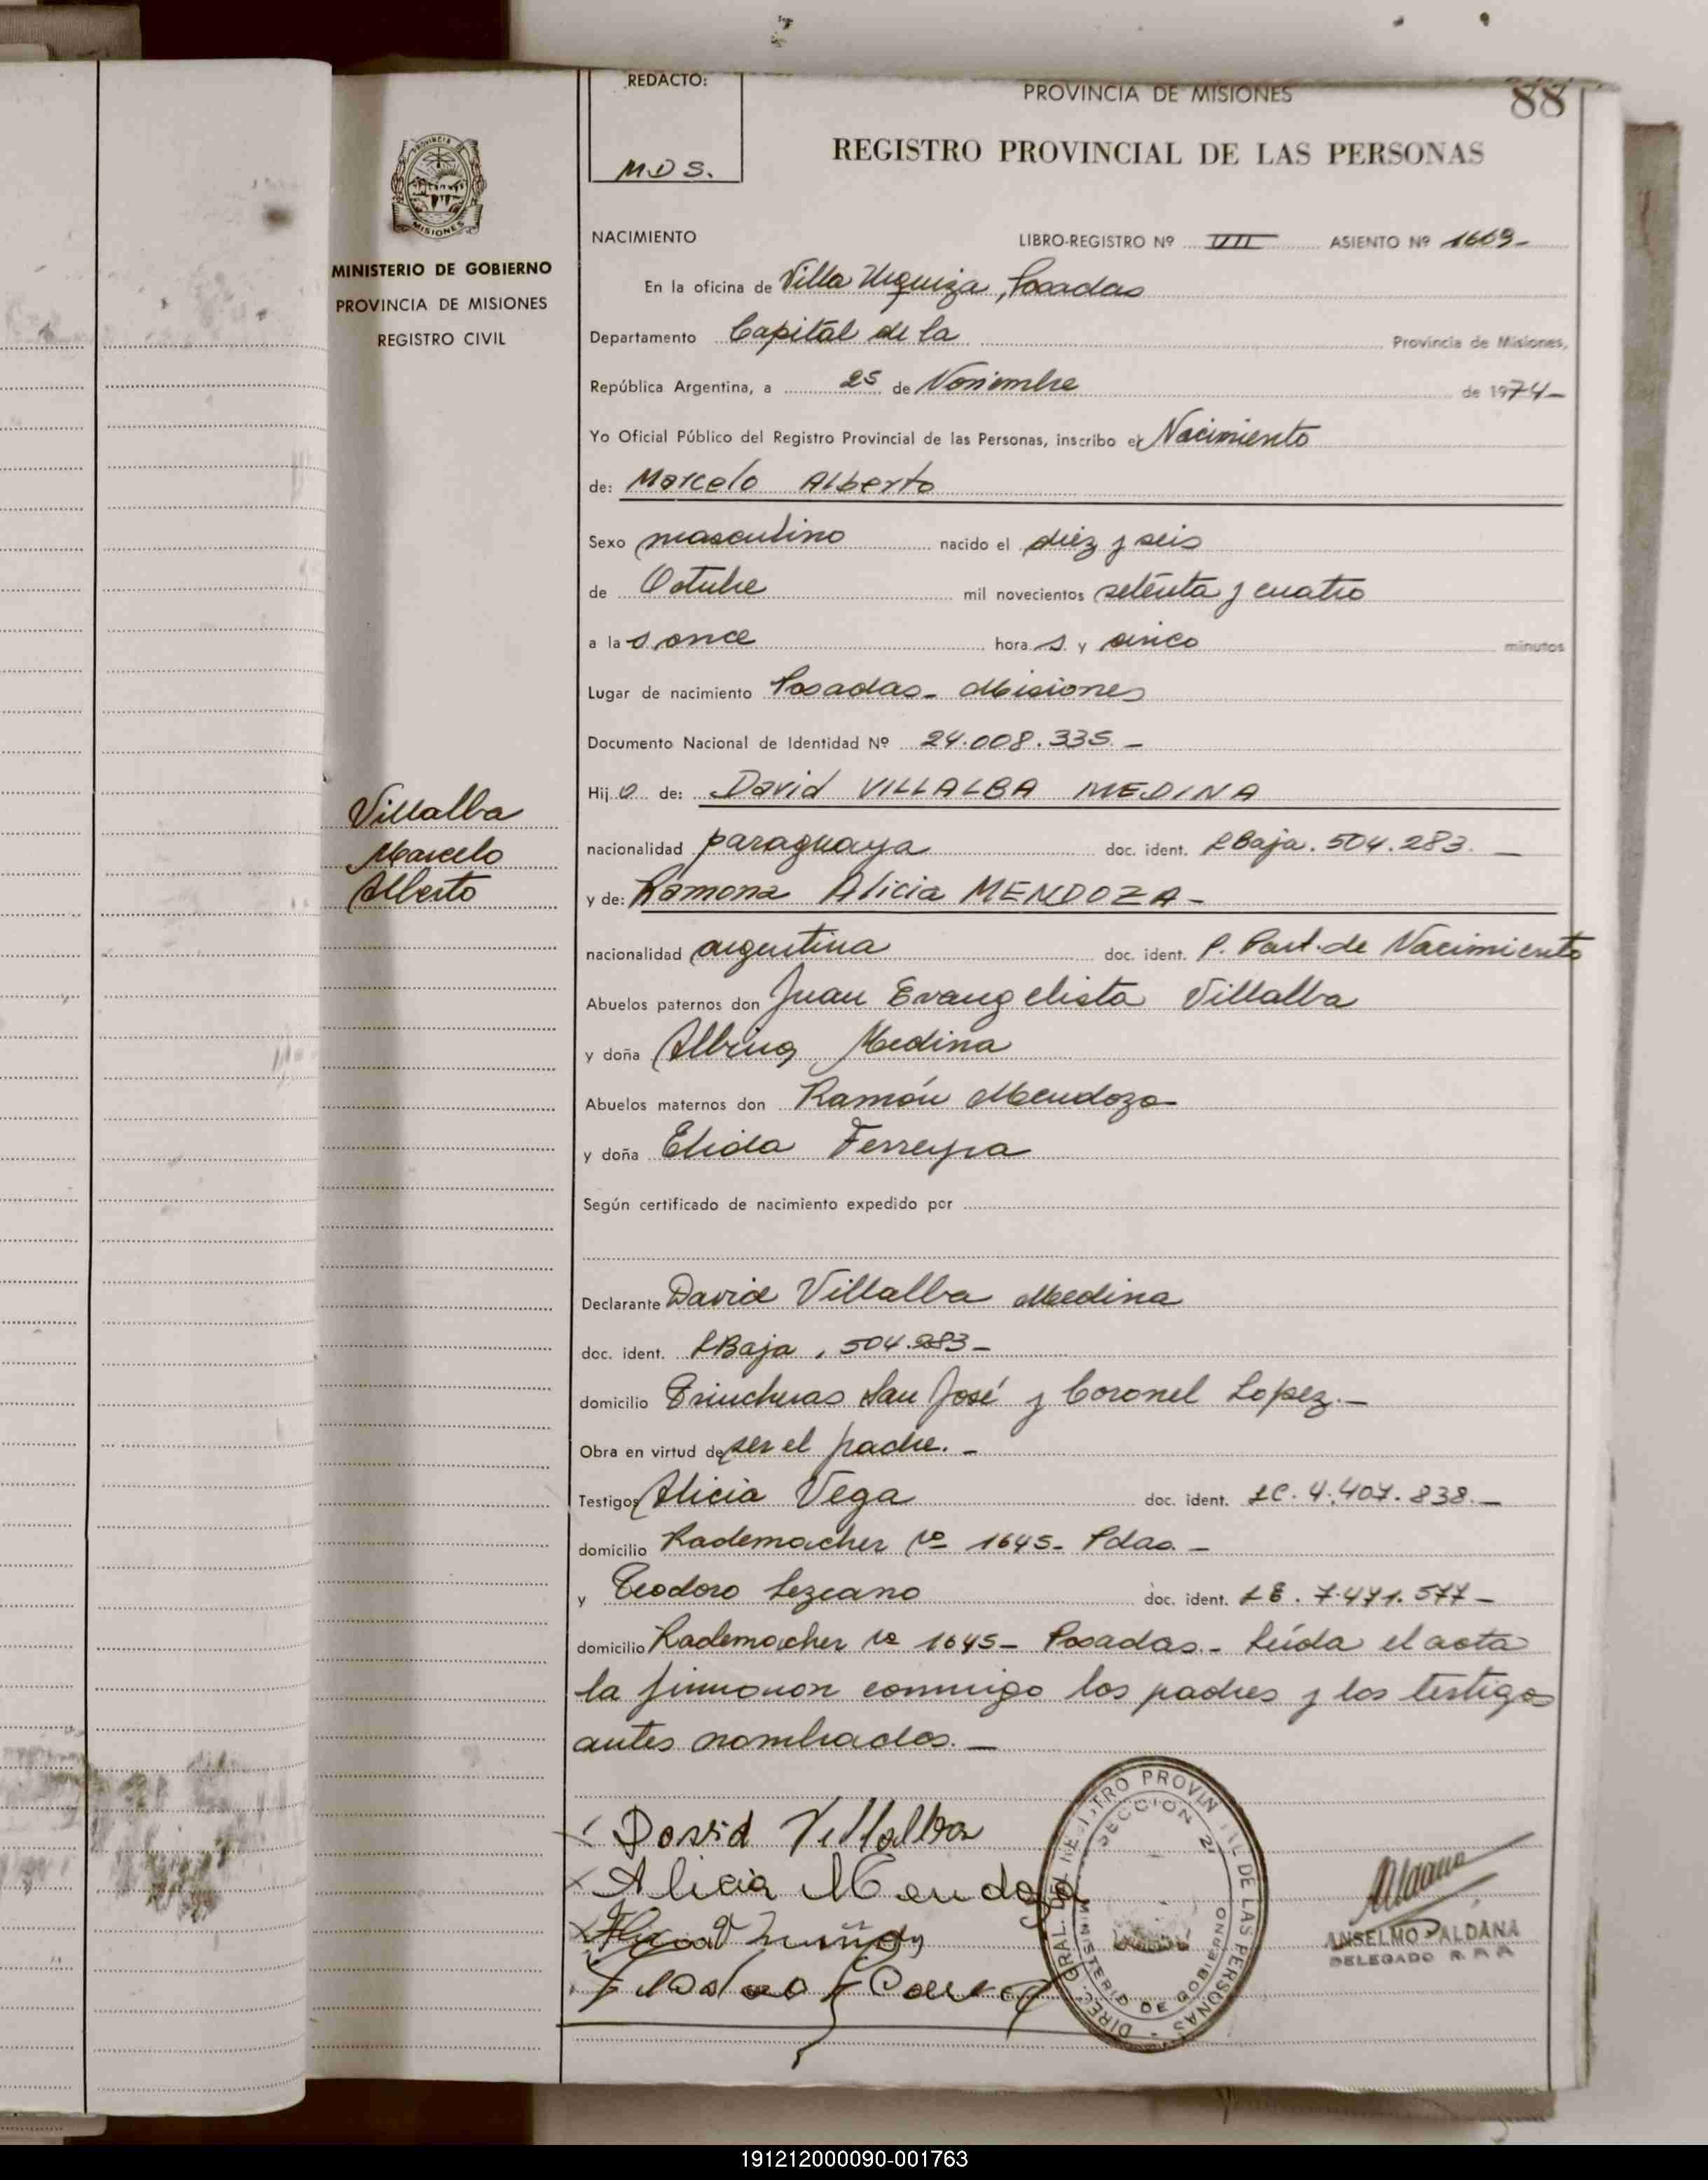 REDACTO:
M.D.S.
PROVINCIA DE MISIONES
88
REGISTRO PROVINCIAL DE LAS PERSONAS
PROVINCIA DE
MISIONES
MINISTERIO DE GOBIERNO
PROVINCIA DE MISIONES
REGISTRO CIVIL
NACIMIENTO LIBRO-REGISTRO Nº VII ASIENTO Nº 1669-
En la oficina de Villa Urquiza, Posadas
Departamento Capital de la Provincia de Misiones,
República Argentina, a 25 de Noviembre de 1974-
Yo Oficial Público del Registro Provincial de las Personas, inscribo el Nacimiento
de: Marcelo Alberto
Sexo masculino nacido el diez y seis
de Octubre mil novecientos setenta y cuatro
a la s once hora s y cinco minutos
Lugar de nacimiento Posadas- Misiones
Documento Nacional de Identidad Nº 24.008.335.-
Hij o de: David VILLALBA MEDINA
Villalba
Marcelo
Alberto
nacionalidad paraguaya doc. ident. RBaja. 504.283. -
y de: Ramona Alicia MENDOZA-
nacionalidad argentina doc. ident. P. Part. de Nacimiento
Abuelos paternos don Juan Evangelista Villalba
y doña Albina Medina
Abuelos maternos don Ramón Mendoza
y doña Elida Ferreyra
Según certificado de nacimiento expedido por
Declarante David Villalba Medina
doc. ident. RBaja, 504.283-
domicilio Trincheras San José y Coronel Lopez.-
Obra en virtud de ser el padre.-
Testigos Alicia Vega doc. ident. LC. 4.407.838.-
domicilio Rademacher Nº 1645- Pdas.-
y Teodoro Lezcano doc. ident. LE. 7.471.577-
domicilio Rademacher Nº 1645- Posadas.- Leída el acta
la firmaron conmigo los padres y los testigos
antes nombrados.-
David Villalba
Alicia Mendoza
DIREC. GRAL. DEL REGISTRO PROVINCIAL DE LAS PERSONAS
SECCION 2ª
MINISTERIO DE GOBIERNO
ANSELMO ALDANA
DELEGADO R.P.P.
191212000090-001763